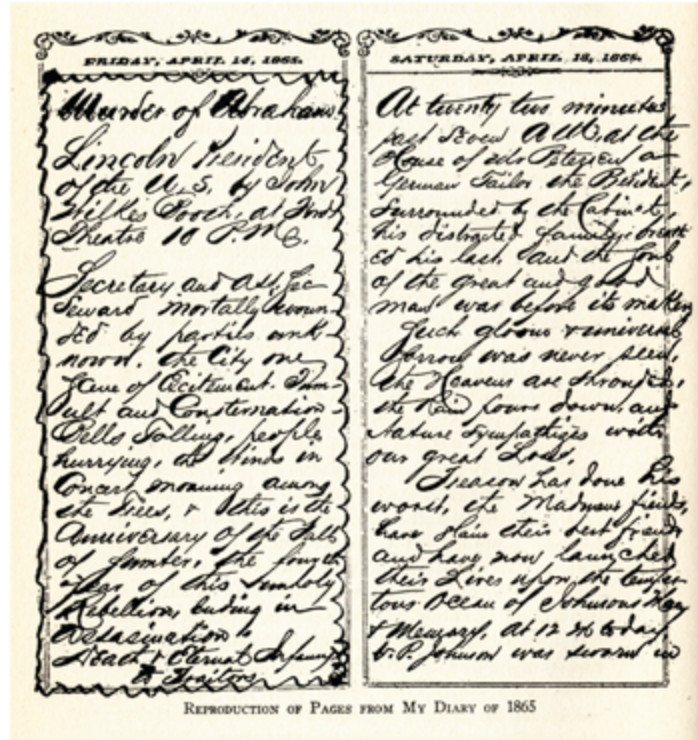 FRIDAY, APRIL 14, 1865.
Murder of Abraham
Lincoln President
of the U.S. by John
Wilkes Booth, at Fords
Theatre 10 P.M.
Secretary and Ast. Sec
Seward mortally woun-
ded by parties unk-
nown. the City one
Scene of Excitement. Tum-
ult and Consternation
Bells Tolling, people
hurrying, the Winds in
Concert moaning among
the Trees, & this is the
Anniversary of the Fall
of Sumter, the fourth
Year of this unholy
Rebellion, Ending in
Assasination
Death & Eternal Infamy
to Traitors
SATURDAY, APRIL 15, 1865.
At twenty two minutes
past seven A M. at the
House of Mr Petersen a
German Tailor the President,
surrounded by the Cabinet,
his distracted family: breath
ed his last. and the Soul
of the great and good
man was before its maker
Such gloom & universal
Sorrow was never seen,
the Heavens are shrouded,
the Rain pours down, and
Nature Sympathizes with
our great Loss.
Treason has done his
worst, the Madmen fiends,
have slain their best friend
and have now launched
their Lives upon the tempes-
tous Ocean of Johnsons
& Memory. At 12 today,
V. P. Johnson was sworn in
REPRODUCTION OF PAGES FROM MY DIARY OF 1865